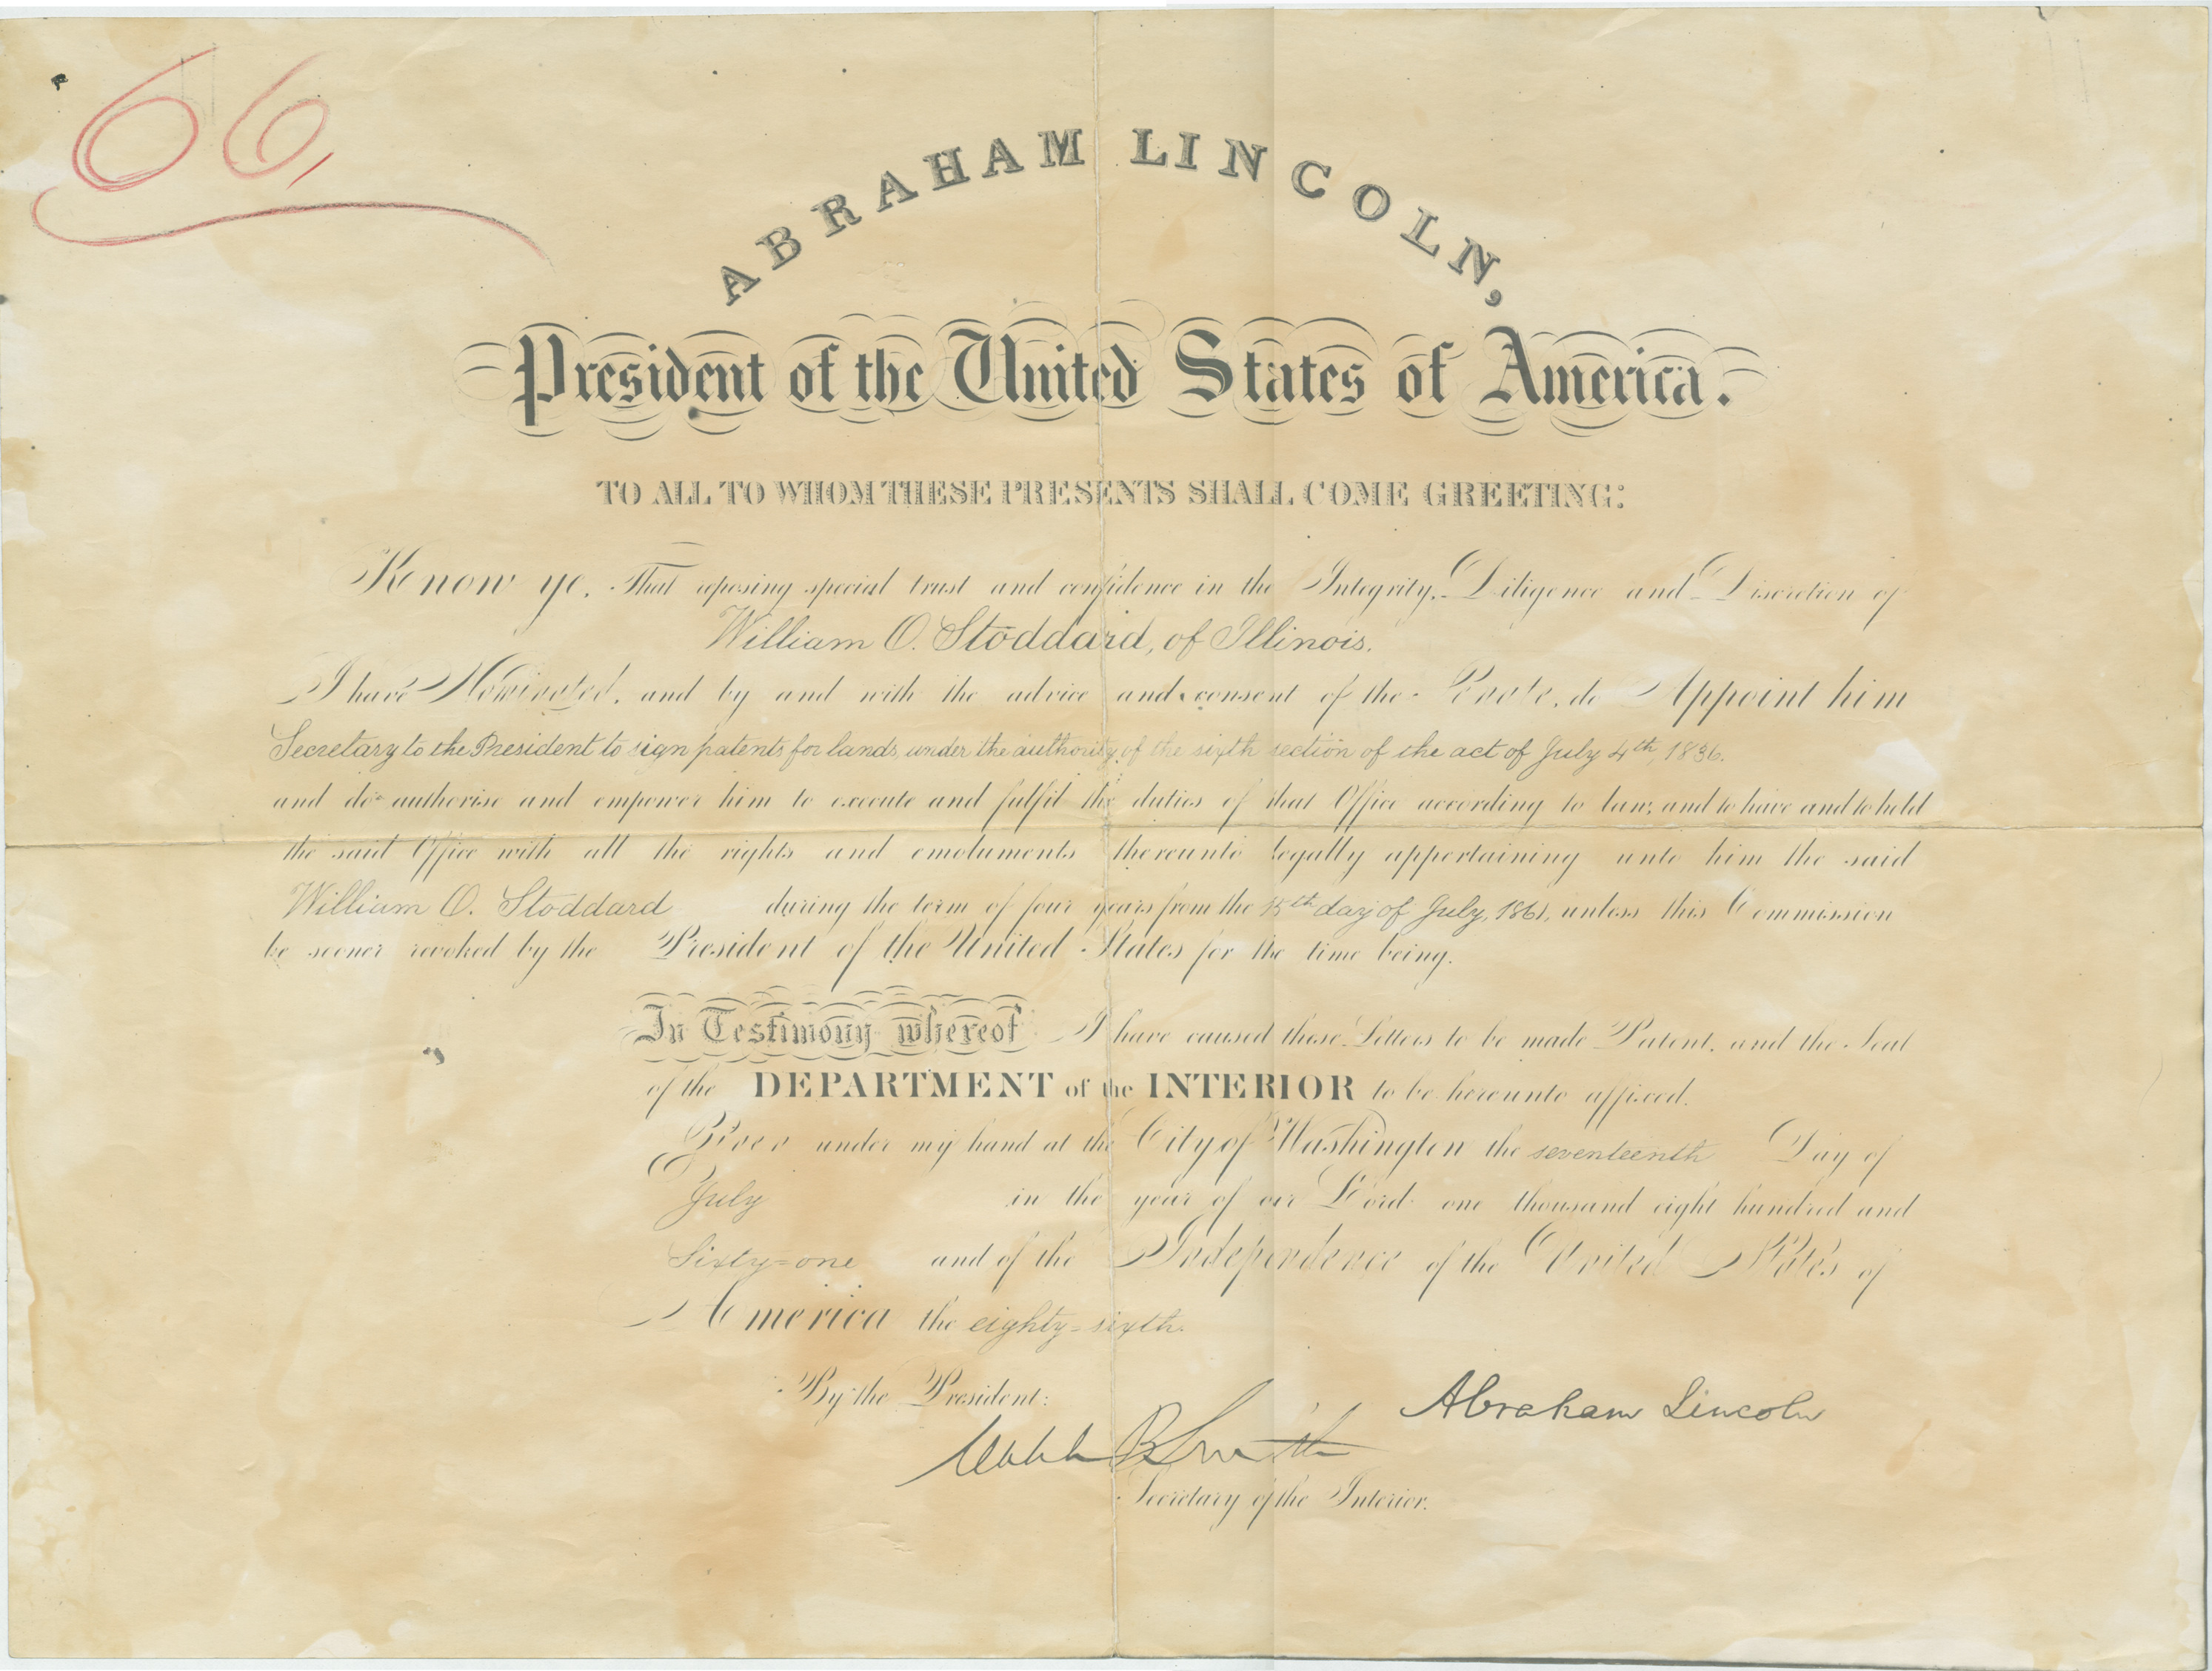 66,
ABRAHAM LINCOLN,
President of the United States of America.
TO ALL TO WHOM THESE PRESENTS SHALL COME GREETING:
Know ye, That reposing special trust and confidence in the Integrity, Diligence and Discretion of
William O. Stoddard, of Illinois.
I have Nominated, and by and with the advice and consent of the Senate, do Appoint him
Secretary to the President to sign patents for lands, under the authority of the sixth section of the act of July 4th, 1836.
and do authorise and empower him to execute and fulfil the duties of that Office according to law, and to have and to hold
the said Office with all the rights and emoluments thereunto legally appertaining unto him the said
William O. Stoddard during the term of four years from the 15th day of July, 1861, unless this Commission
be sooner revoked by the President of the United States for the time being.
In Testimony whereof I have caused these Letters to be made Patent, and the Seal
of the DEPARTMENT of the INTERIOR to be hereunto affixed.
Given under my hand at the City of Washington the seventeenth Day of
July in the year of our Lord one thousand eight hundred and
Sixty=one and of the Independence of the United States of
America the eighty=sixth.
By the President:
Abraham Lincoln
Caleb B Smith
Secretary of the Interior.